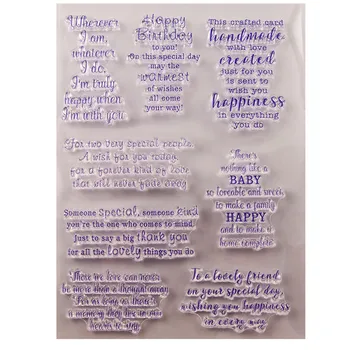 Wherever
I am,
whatever
I do.
I'm truly
happy when
I'm with you
Happy
Birthday
to you!
On this special day
may the
warmest
of wishes
all come
your way!
This crafted card
handmade
with love
created
just for you
is sent to
wish you
happiness
in everything
you do
For two very special people
A wish for you today,
For a forever kind of love
that will never fade away
There's
nothing like a
BABY
to
make a family
HAPPY
and to
make a
home complete
Someone Special, someone kind
you're the one who comes to mind
Just to say a big thank you
for all the lovely things you do
be more than a thought away
For as long as
a memory they
To a lovely friend
on your special day,
wishing you happiness
in every way